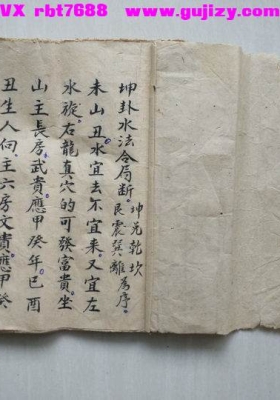 VX rbt7688 www.gujizy.com
坤卦水法合局断。坤兑乾坎
艮震巽離為序。
未山丑水宜去不宜来。又宜左
水旋右龍真穴的可發富貴。坐
山主長房武貴應甲癸年。已酉
丑生人向。主六房文貴應甲癸